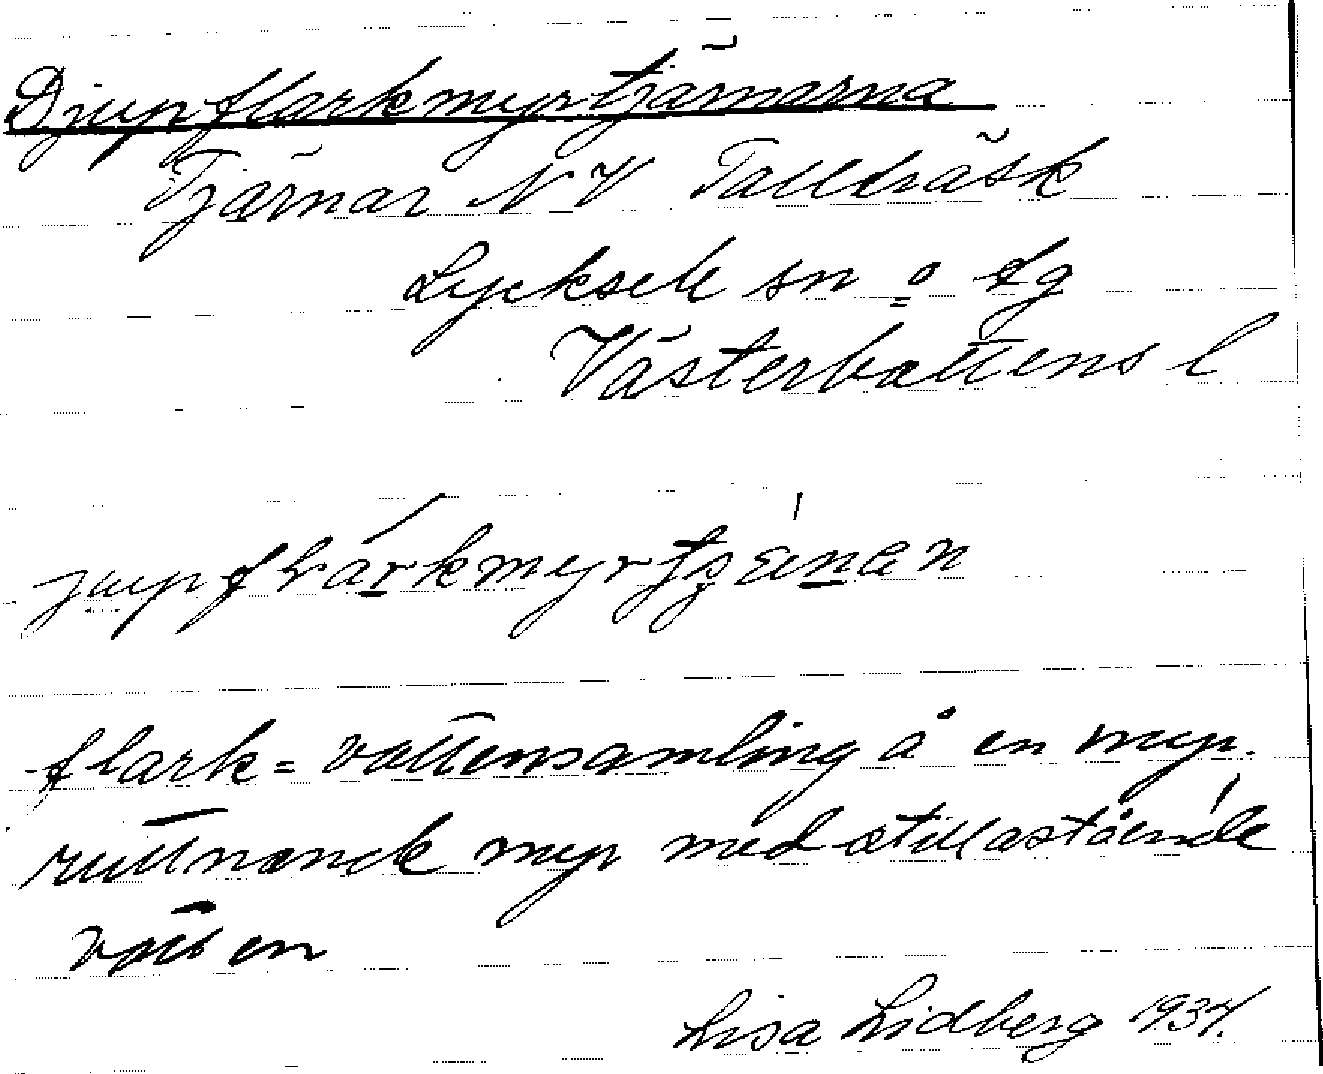 Djupflarkmyrtjärnarna
Tjärnar NV Tallträsk
Lycksele sn o. lg
Västerbottens l
flark = vattensamling å en myr.
ruttnande myr med stillastående
vatten
Lisa Lidberg 1934.